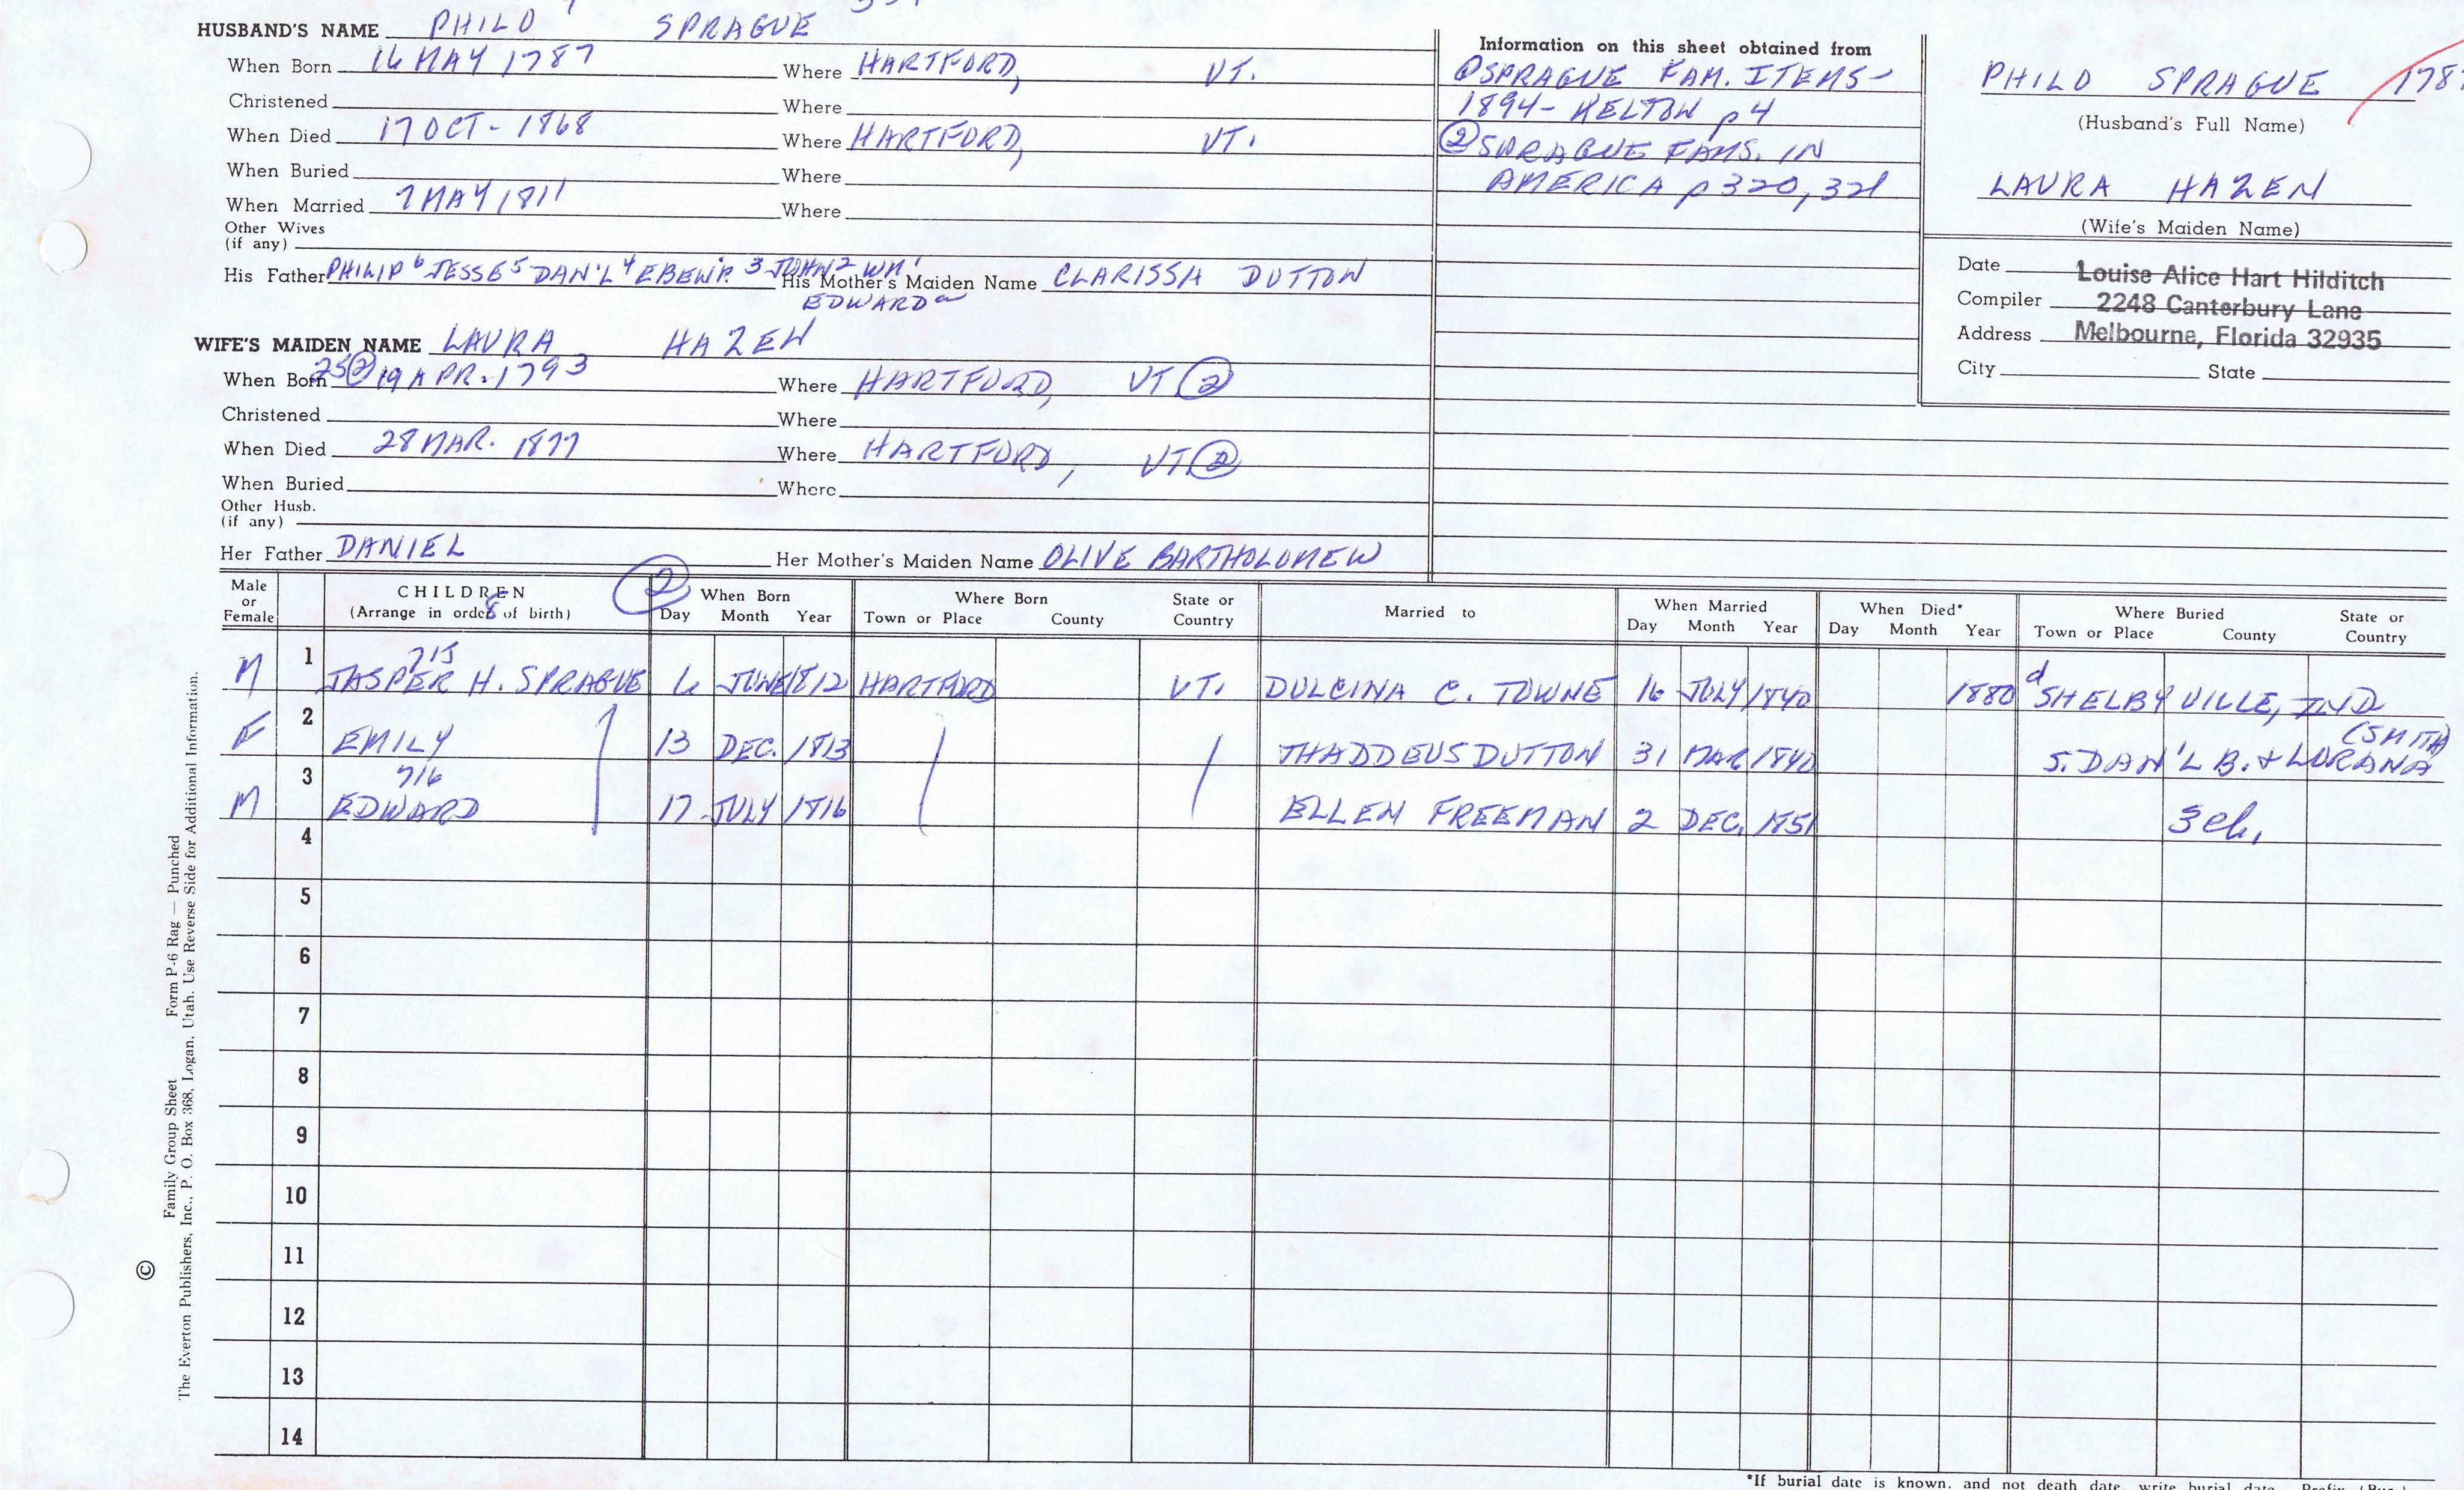 HUSBAND'S NAME PHILO SPRAGUE
When Born 16 MAY 1787 Where HARTFORD, VT.
Christened Where
When Died 17 OCT - 1868 Where HARTFORD, VT.
When Buried Where
When Married 7 MAY 1811 Where
Other Wives
(if any)
His Father PHILIP 6 JESSE 5 DAN'L 4 EBEN'R. 3 JOHN 2 WM 1 His Mother's Maiden Name CLARISSA DUTTON
EDWARD
WIFE'S MAIDEN NAME LAURA HAZEN
When Born 25 ② 19 APR. 1793 Where HARTFORD, VT ②
Christened Where
When Died 28 MAR. 1877 Where HARTFORD, VT ②
When Buried Where
Other Husb.
(if any)
Her Father DANIEL Her Mother's Maiden Name OLIVE BARTHOLOMEW
Information on this sheet obtained from
① SPRAGUE FAM. ITEMS-
1894- KELTON p 4
② SPRAGUE FAMS. IN
AMERICA p 320, 321
PHILO SPRAGUE 178
(Husband's Full Name)
LAURA HAZEN
(Wife's Maiden Name)
Date Louise Alice Hart Hilditch
Compiler 2248 Canterbury Lane
Address Melbourne, Florida 32935
City State
Male or Female CHILDREN 8 (Arrange in order of birth) ② When Born Day Month Year Where Born Town or Place County State or Country Married to When Married Day Month Year When Died* Day Month Year Where Buried Town or Place County State or Country
715
M 1 JASPER H. SPRAGUE 6 JUNE 1812 HARTFORD VT. DULCINA C. TOWNE 16 JULY 1840 1880 d SHELBYVILLE, IND
(SMITH)
F 2 EMILY 13 DEC. 1813 THADDEUS DUTTON 31 MAR 1840 S. DAN'L B. + LORANA
716
M 3 EDWARD 17 JULY 1816 ELLEN FREEMAN 2 DEC. 1851 3 ch.
4
5
6
7
8
9
10
11
12
13
14
© Family Group Sheet Form P-6 Rag — Punched
The Everton Publishers, Inc., P. O. Box 368, Logan, Utah. Use Reverse Side for Additional Information.
*If burial date is known, and not death date, write burial date.